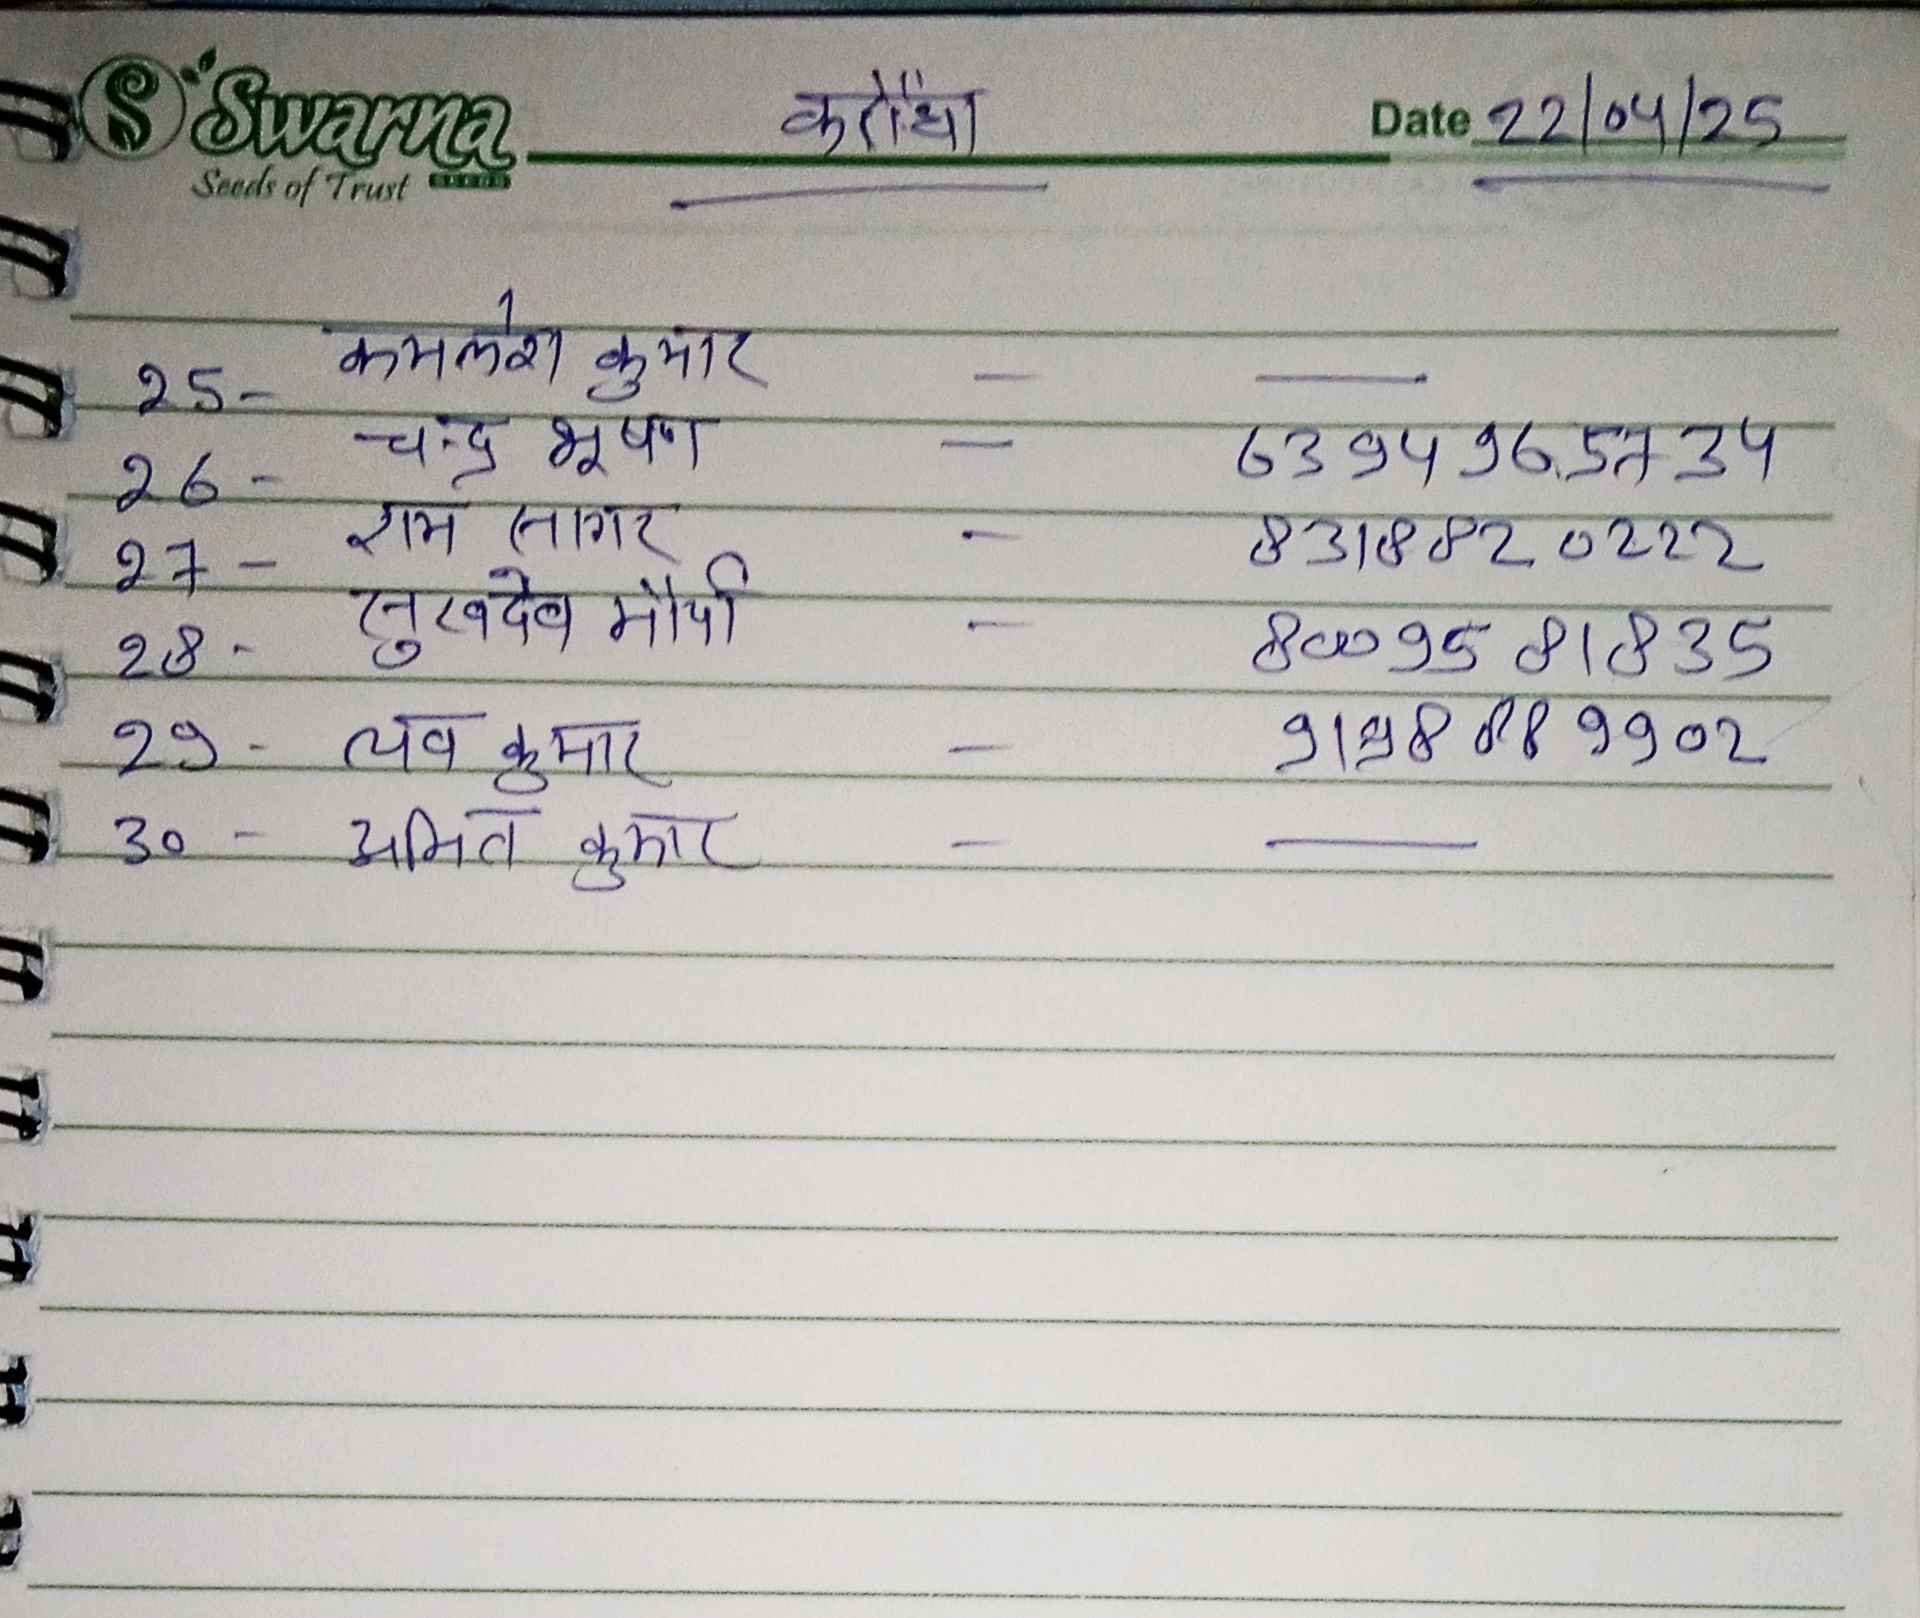 Swarna
Seeds of Trust SEEDS
करौंधा
Date 22/04/25
25- कमलेश कुमार - —
26- चन्द्र भूषण - 6394965734
27- राम सागर - 8318820222
28- सुखदेव मौर्या - 8009581835
29- लव कुमार - 9198889902
30- अमित कुमार - —